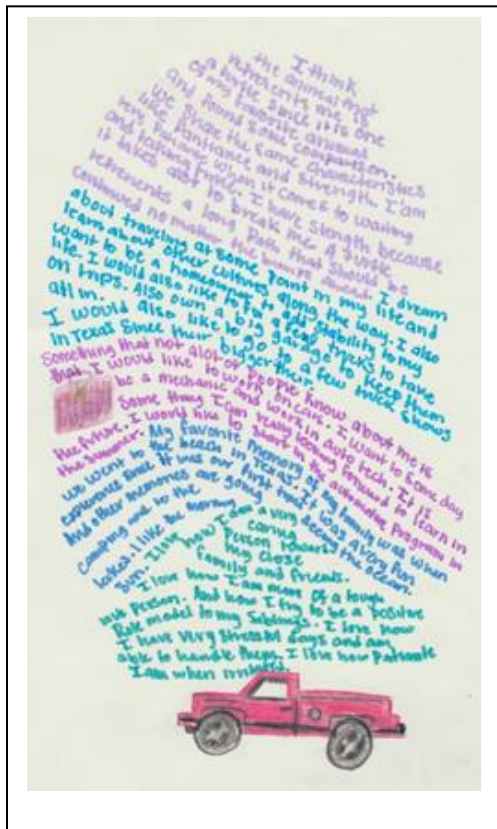 I think
the animal that
represents me is
a turtle since it is one
of my favorite animals
and found some comparison.
We share the same characteristics
like and strength. I am
very when it comes to waiting
and taking I have stength because
it takes alot to break me. A turtle
represents a long Path that should be
continued no matter the bumps I dream
about traveling at some point in my life and
learn about other cultures along the way. I also
want to be a homeowner to add stability to my
life. I would also like to for a few trucks to take
on trips. Also own a big garage to keep them
all in.
I would also like to go to a few truck shows
in Texas Since their bigger their.
Something that not alot of People know about me is
that I would like to work on cars. I want to some day
be a mechanic and work in auto tech. It is
Some thing I am really looking forward to learn in
the future. I would like to start in the automotive program in
the summer. My favorite memory of my family was when
we went to the beach in Texas. It was a very fun
experience since it was our first time the ocean.
And other memories are going
camping and to the
lakes. I like the morning
sun. I love
how I am a very
caring
Person towards
my close
family and friends.
I love how I am more of a tough
Person. And how I try to be a positive
Role model to my Siblings. I love how
I have very stressful days and am
able to handle them. I love how
I am when